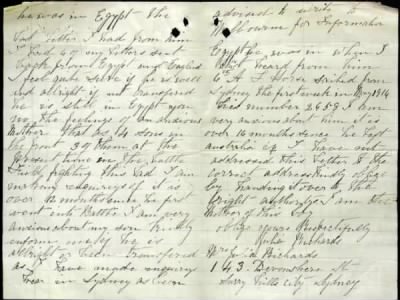 he was in Egypt the
last letter I had from him
I had 4 of my letters sent
back from Egypt my England
I feel quite he is well
and allright if not transfered
he is still in Egypt you
no the feelings of an anxious
Mother that as 4 sons in
the front 3 of them at the
present time on the battle
field fighting this lad I am
making enquireys of it is
over 12 months since he first
went into Battle I am very
anxious about my son kindly
inform me if he is
allright been transfered
as I have made enquireys
here in Sydney as been
advised to write to
Melbourne for Information
Egypt he was in when I
last heard from him
6th A L Horse sailed from
Sydney the first week in May 1914
his number 2653 I am
very anxious about him it is
over 16 months since he left
australia if I have not
addressed this letter to the
correct address kindly oblige
by handing over to the
bright authority I am the
Mother of this boy
oblige yours Respectfully
Julia Richards
Mrs Julia Richards
143 Devonshire St
Surry Hills city Sydney